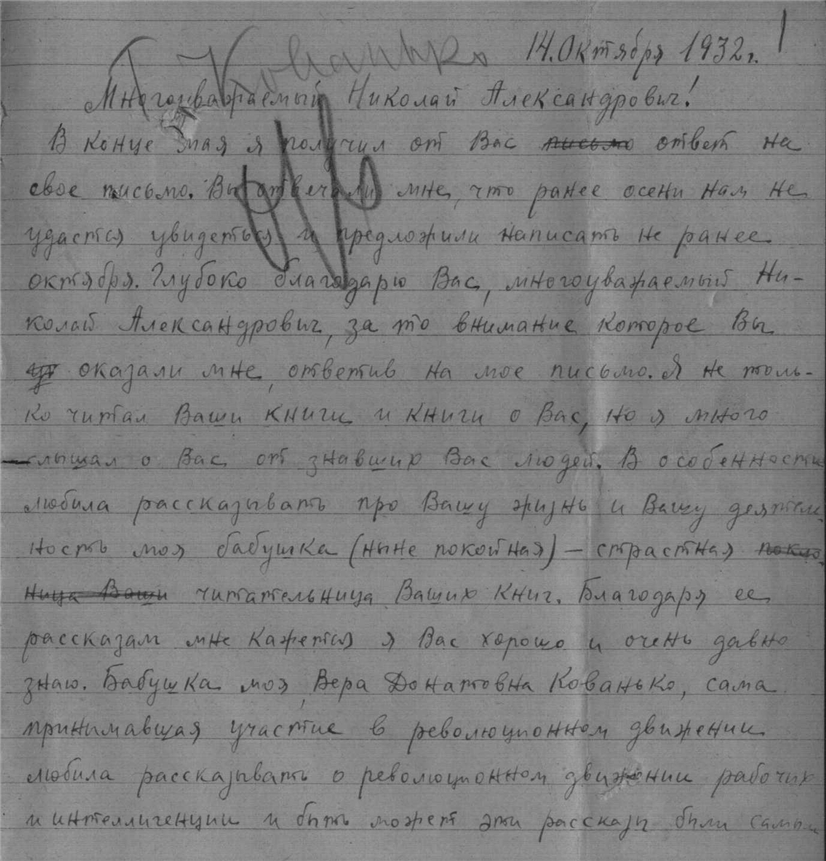 Т. Кованько
14. Октября 1932г. 1
Многоуважаемый Николай Александрович!
В конце мая я получил от Вас письмо ответ на
свое письмо. Вы отвечали мне, что ранее осени нам не
удастся увидеться и предложили написать не ранее
октября. Глубоко благодарю Вас, многоуважаемый Ни-
колай Александрович, за то внимание которое Вы
оказали мне, ответив на мое письмо. Я не толь-
ко читал Ваши книги и книги о Вас, но я много
слышал о Вас от знавших Вас людей. В особенности
любила рассказывать про Вашу жизнь и Вашу деятель
ность моя бабушка (ныне покойная) – страстная покло
ница Ваши читательница Ваших книг. Благодаря ее
рассказам мне кажется я Вас хорошо и очень давно
знаю. Бабушка моя, Вера Донатовна Кованько, сама
принимавшая участие в революционном движении
любила рассказывать о революционном движении рабочих
и интеллигенции и быть может эти рассказы были самым